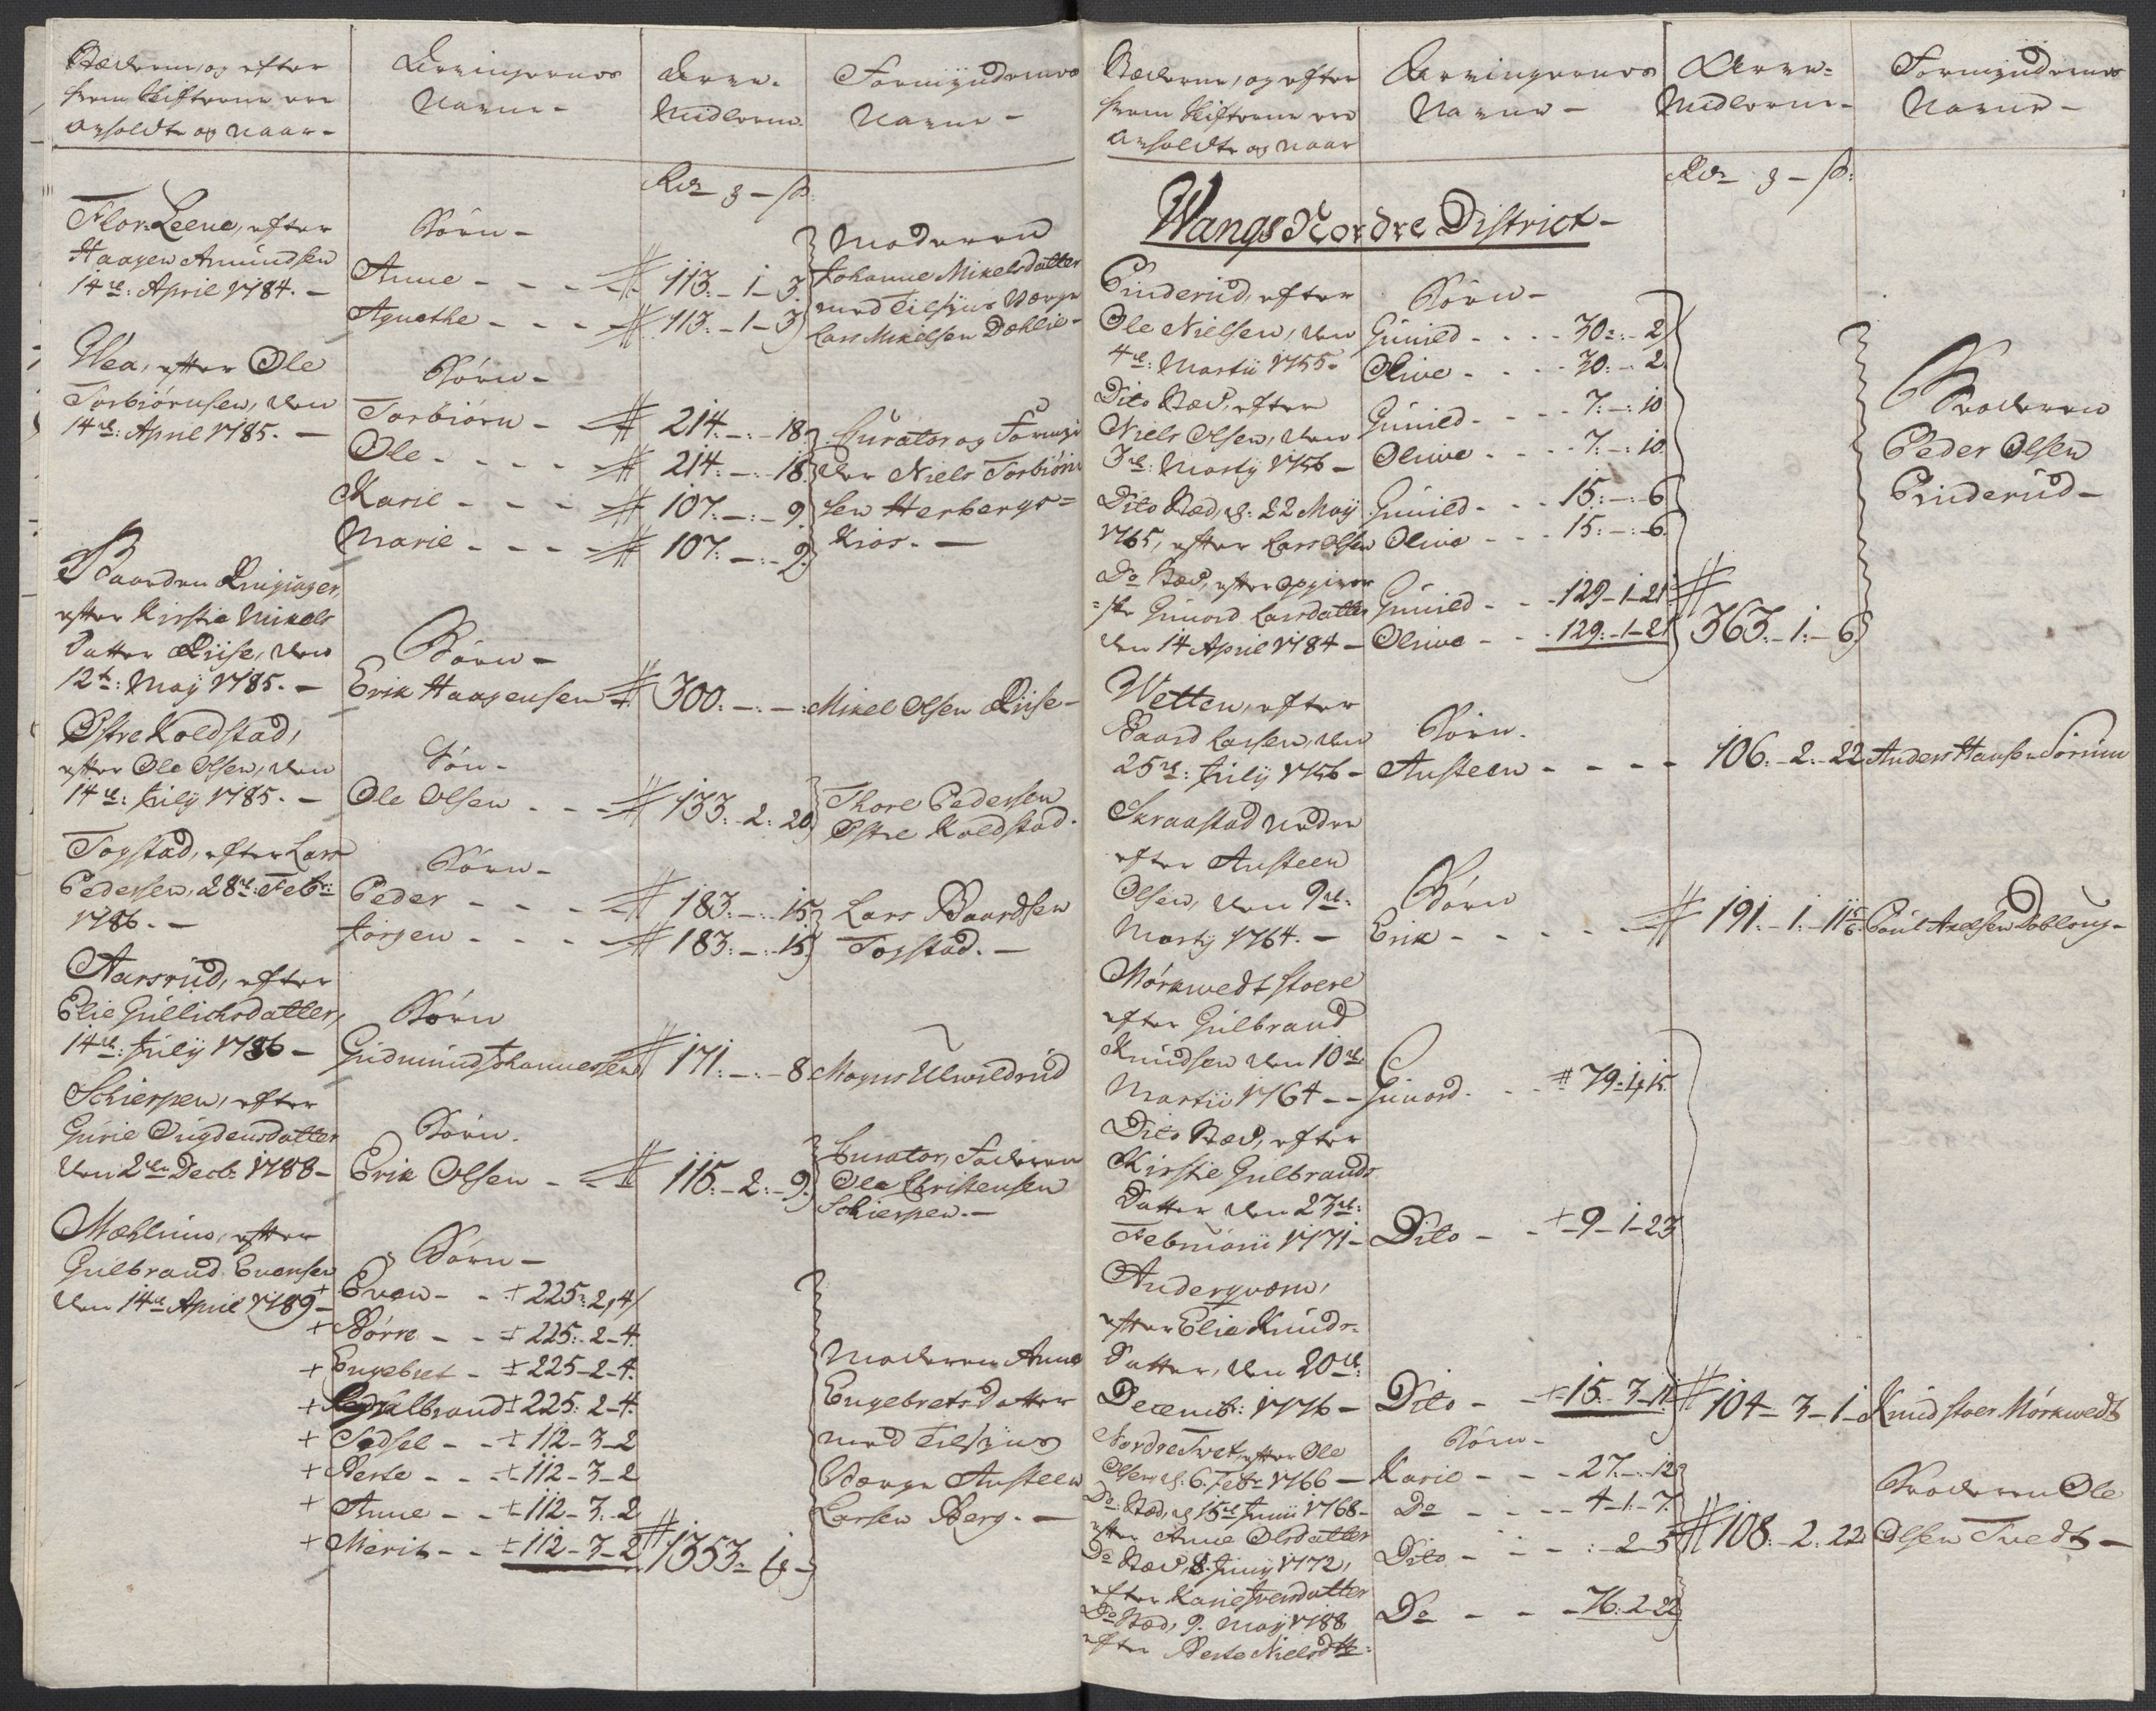 Stæderne, og efter
hvem Skifterne ere
afholdte og naar -
Arvingernes
Navne -
Arve-
Midlerne.
Formyndernes
Navne -
Rdr - ß
Flor-Leene, efter
Haagen Amundsen
14de: April 1784. -
Børn -
Anne - - - - 113. - 1 - 3.
Agnethe - - - 113. - 1 - 3
Moderen
Johanne Mikelsdatter
med Tilsyns Værge
Lars Mikelsen Dæhlie -
Wea, efter Ole
Torbiørnsen, den
14de: April 1785. -
Børn -
Torbiørn - - 214. - : - 18.
Ole - - - - - 214. - : - 18.
Karie - - - - 107. - : - 9.
Marie - - - - 107. - : - 9.
Curator og Formyn
der Niels Torbiørn
sen Herbergs=
Kior. -
Gaarden Ringsager,
efter Kirstie Mikels
Datter Riise, den
12te: Maÿ 1785. -
Børn -
Erik Haagensen 300. - : - :
Mikel Olsen Riise -
Østre Koldstad,
efter Ole Olsen, den
14de: Julÿ 1785. -
Søn -
Ole Olsen - - - 133. - 2: 20
Thore Pedersen
Østre Koldstad.
Togstad, efter Lars
Pedersen, 28de: Febr:
1786. -
Børn -
Peder - - - - 183. - : - 15
Jørgen - - - - 183. - : - 15
Lars Baardsen
Togstad. -
Aarsrud, efter
Elie Gullichsdatter,
14de: Julÿ 1786 -
Børn
Gudmund Johannessen 171. - : - 8.
Mogens Ulwildrud
Schierpen, efter
Gurie Øugdensdatter
den 2den Decb: 1788 -
Børn.
Erik Olsen - - 115. - 2. - 9.
Curator, Faderen
Ole Christensen
Schierpen. -
Mæhlum, efter
Gulbrand Evensen
den 14de April 1789 -
Børn -
+ Even - - + 225: 2, 4
+ Børre - - + 225. - 2 - 4.
+ Engebret - + 225 - 2 - 4.
+ Gulbrand + 225: 2 - 4.
+ Sidsel - - + 112 - 3 - 2
+ Berte - - + 112 - 3 - 2
+ Anne - - + 112 - 3. - 2
+ Merit - - + 112 - 3 - 2 1353.
Moderen Anne
Engebrets Datter
med Tilsyns
Værge Austeen
Larsen Berg. -
Stæderne, og efter
hvem Skifterne ere
afholdte og naar
Arvingernes
Navne -
Arve=
Midlerne -
Formyndernes
Navne -
Rdr - ß
Wangs Nordre District -
Finderud, efter
Ole Nielsen, den
4de: Martii 1755.
Børn -
Gunild - - - - 30: - 2
Olive - - - - 30: - 2.
Dito Stæd, efter
Niels Olsen, den
3de: Martÿ 1756 -
Gunild - - - - 7: - : 10
Olive - - - - 7. - : 10.
Dito Stæd, d: 22 Maÿ
1765, efter Lars Olsen
Gunild - - - 15: - : 6
Olive - - - 15: - : 6.
Do Stæd, efter
Gunord Larsdatter
den 14 April 1784 -
Gunild - - - 129 - 1 - 21
Olive - - - 129: - 1 - 21 363. - 1: - 6
Broderen
Peder Olsen
Finderud -
Wetten, efter
Gaard Larsen, den
25de: Julÿ 1756 -
Børn.
Austeen - - - - 106. - 2. - 22
Anders Hansen Sørum
Skraastad nedre
efter Austeen
Olsen, den 9de:
Martÿ 1764. -
Børn
Erik - - - - - 191. - 1. - 11
Poul Axelsen Dobloug -
Mørkwedt stoere
efter Gulbrand
Knudsen den 10de
Martii 1764 - -
Gunord - - - 79: 1, 15.
Dito Stæd, efter
Kirstie Gulbrands
Datter den 23de:
Februarii 1771 -
Dito - - + - 9 - 1 - 23
Anderqværn,
efter Elie Knuds-
Datter, den 20de:
Decemb: 1776 -
Dito - - + 15. - 3 - 11 104 - 3 - 1 -
Knud stoer Mørkwedt
Nordre Tvet, efter Ole
Olsen, d: 6. Febr 1766 -
Børn -
Karie - - - - 27. - : 12
Do Stæd, d 15de Junii 1768 -
efter Anne Olsdatter
Do - - - - 4 - 1 - 7.
Do Stæd, 8. Junÿ 1772,
efter Karie Iversdatter
Dito - - - - : - 2 - 5 108. - 2. 22
Do Stæd, 9. Maÿ 1788
efter Berte Nielsdtr:
Do - - - - 76: 2 - 22
Broderen Ole
Olsen Tvedt -